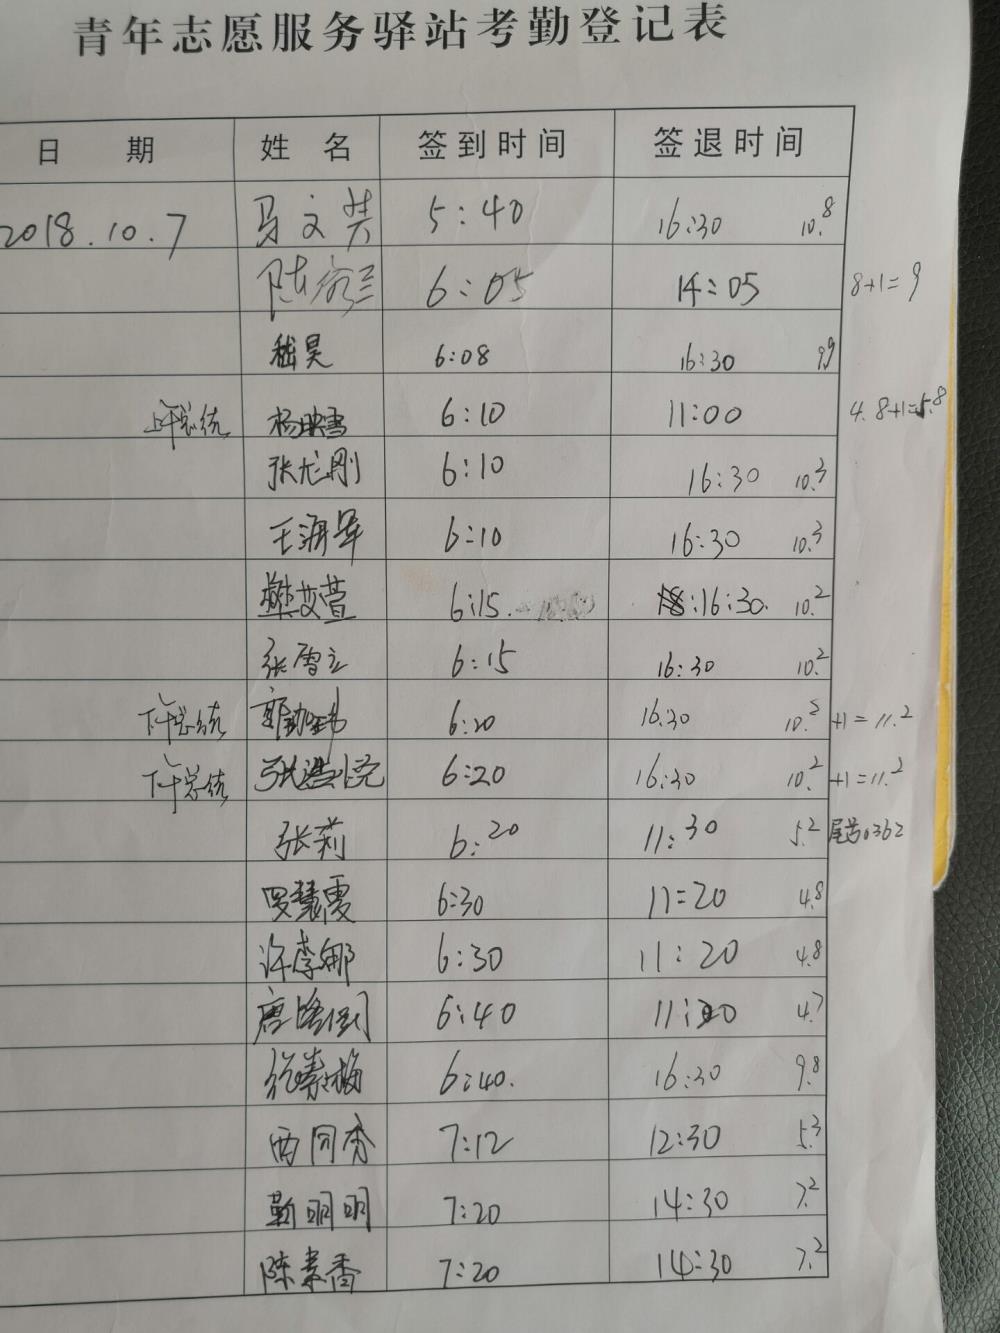 青年志愿服务驿站考勤登记表
日 期 姓 名 签到时间 签退时间
2018.10.7 马文芳 5:40 16:30 10.8
陈 6:05 14:05 8+1=9
嵇昊 6:08 16:30 9.9
上午总统 杨映雪 6:10 11:00 4.8+1=5.8
张尤刚 6:10 16:30 10.3
王海军 6:10 16:30 10.3
樊艾萱 6:15. 16:30. 10.2
张雪立 6:15 16:30 10.2
下午总统 郭 6:20 16.30 10.2 +1=11.2
下午总统 张 6:20 16:30 10.2 +1=11.2
张莉 6:20 11:30 5.2 尾号0362
罗慧霞 6:30 11:20 4.8
许李娜 6:30 11:20 4.8
唐 6:40 11:20 4.7
徐素梅 6:40. 16:30 9.8
西同秀 7:12 12:30 5.3
靳明明 7:20 14:30 7.2
陈素香 7:20 14:30 7.2